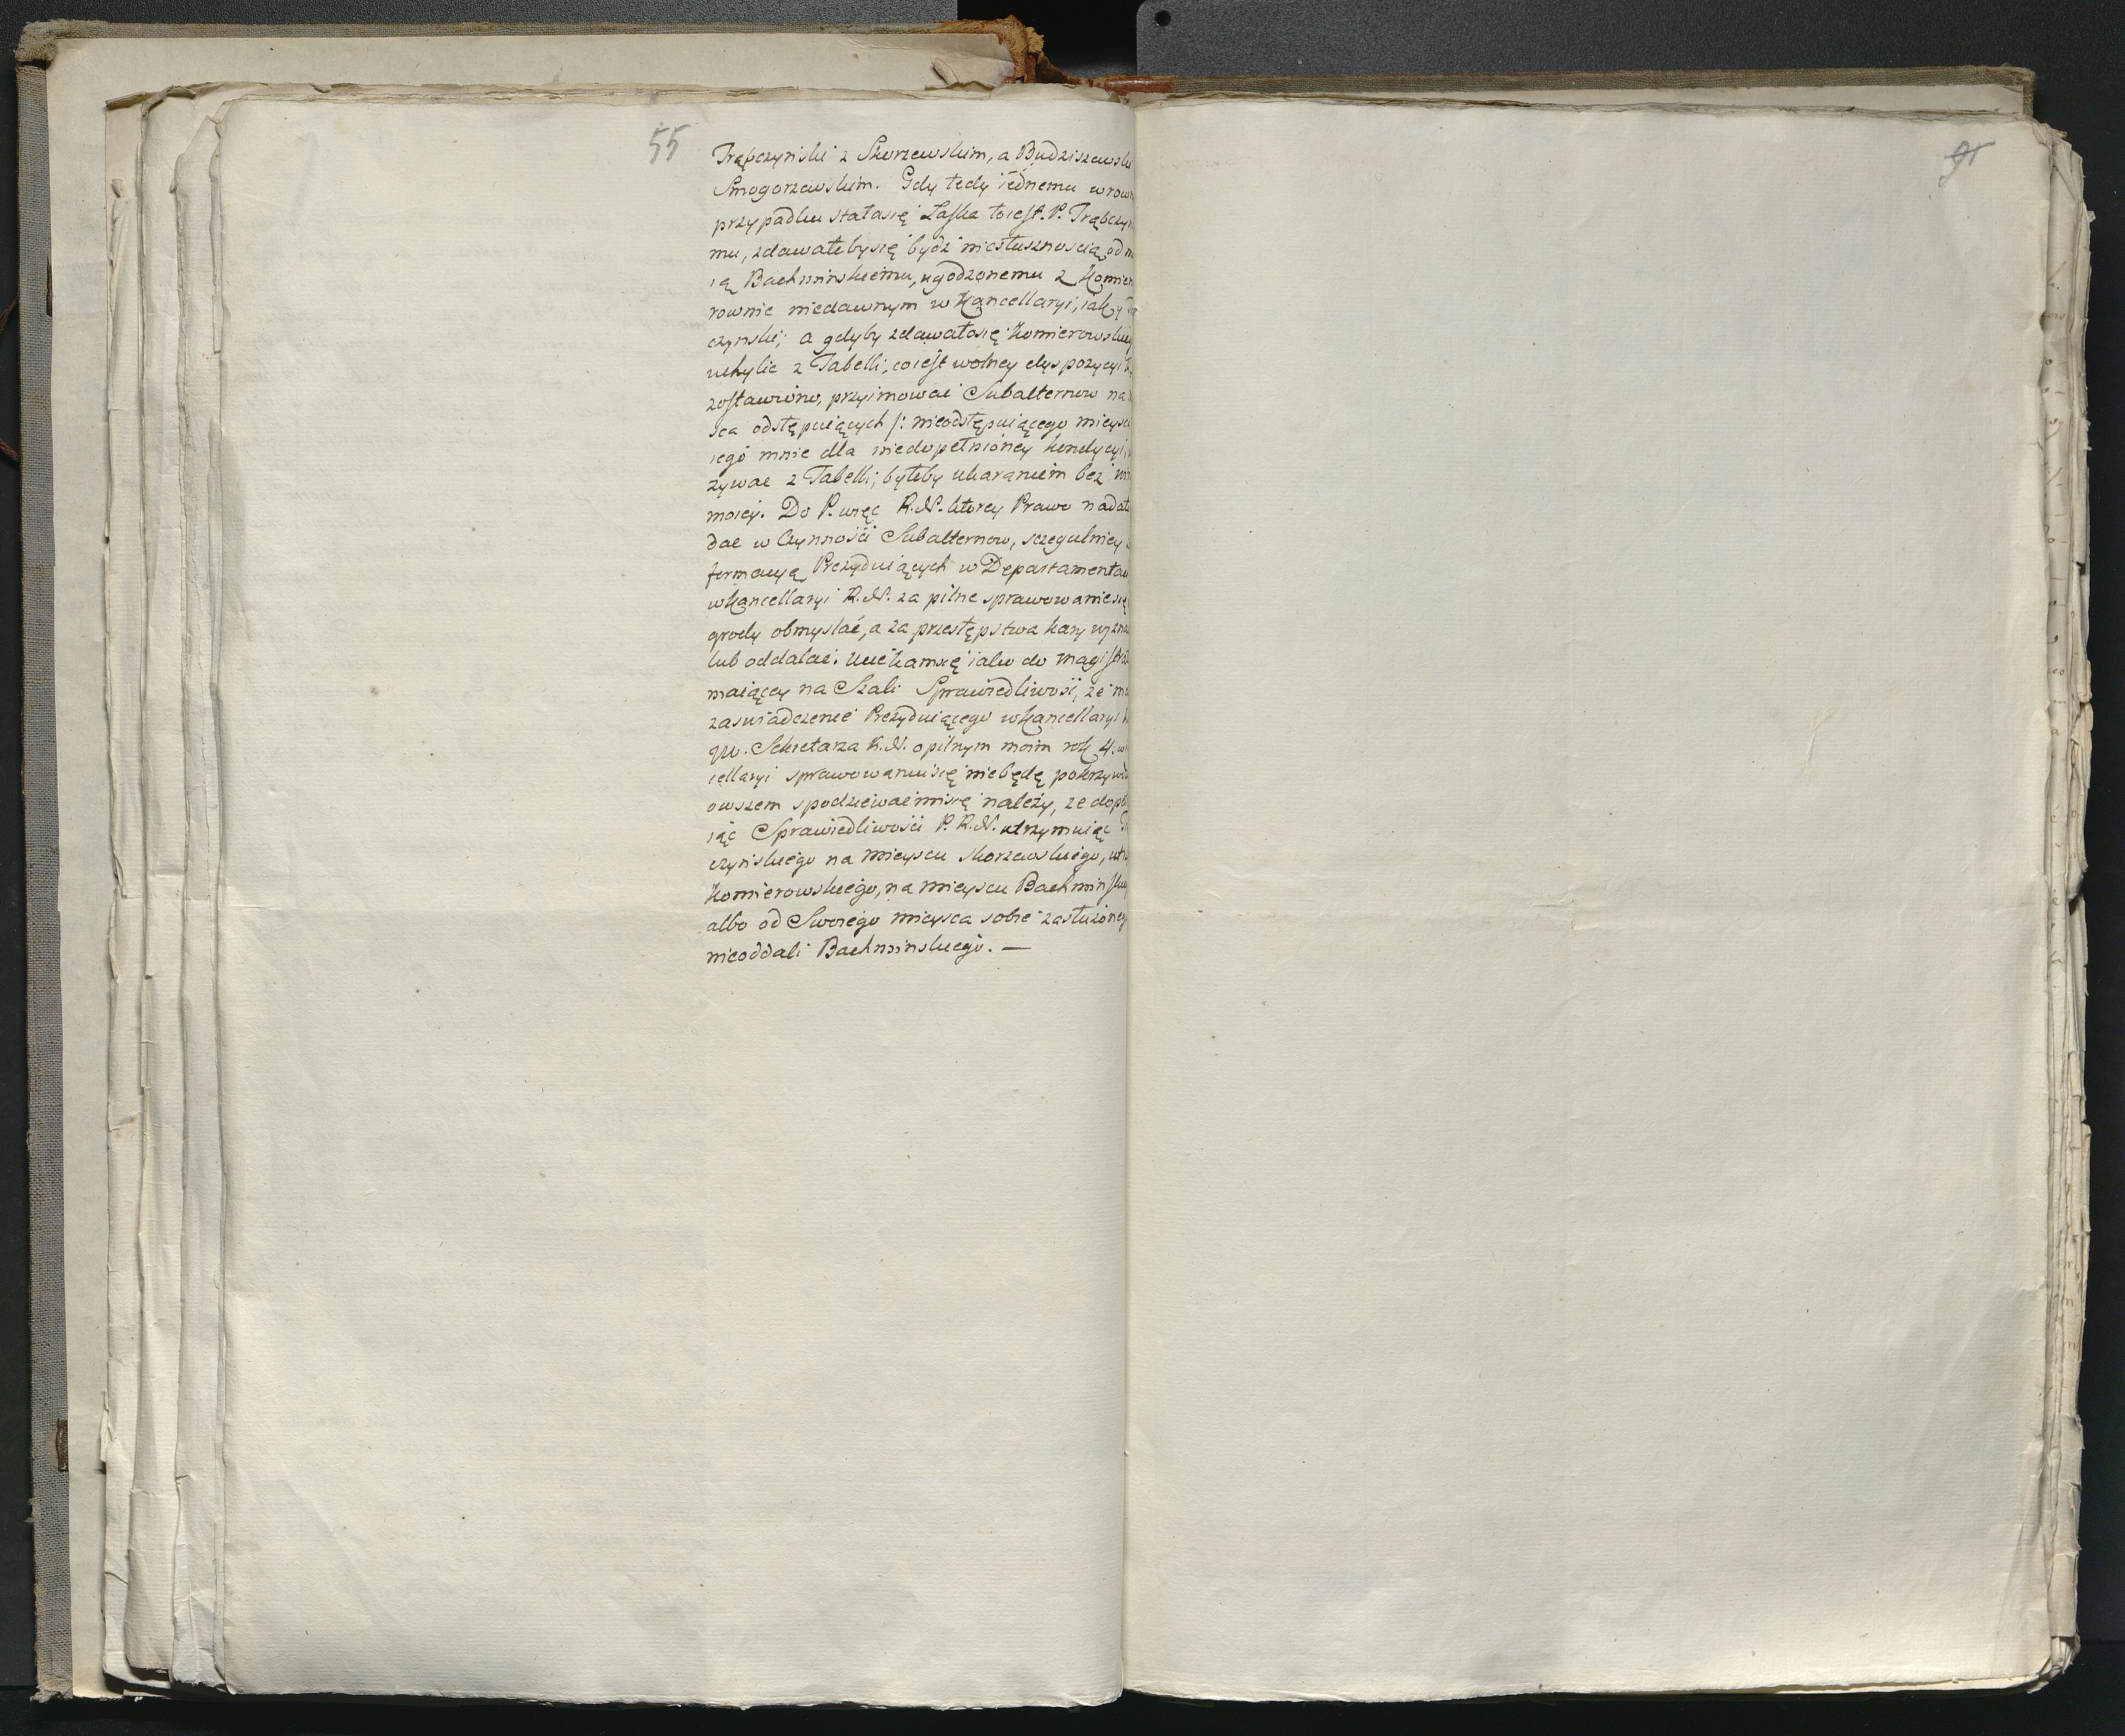 55
Trąbczyński z Skorzewskim, a Budziszewski
Smogorzewskim. Gdy tedy iednemu w rown
przypadku stałasię Łaska toiest. P. Trąbczyn
mu, zdawałobysię bydź niesłusznoscią od m
ią Bachminskiemu, ugodzonemu z Komier
rownie niedawnym w Kancellaryi, iak y Trą
czynski; a gdyby zdawałosię Komierowskieg
uchylic z Tabelli, coiest wolney dyspozycyi
zostawiono, przyimować Subalternow na
sca odstępuiących /: nieodstępuiącego mieysc
iego mnie dla niedopełnioney kondycyi,
zywac z Tabelli; byłoby ukaraniem bez win
moiey. Do P. więc R. N. ktorey Prawo nadał
dac w Czynności Subalternow, sczegulniey
formacyą Prezyduiących w Departamentac
w Kancellaryi R. N. za pilne sprawowaniesię
grody obmyslać, a za przestępstwa kary wyzna
lub oddalać. Uciekamsię iako do Magistra
maiącey na Szali Sprawiedliwość, że ma
zaswiadczenie Prezyduiącego w Kancellaryi
JW. Sekretarza R. N. o pilnym moim rok 4. w
cellaryi sprawowaniusię niebędę pokrzywd
owszem spodziewaćmisię należy, ze dop
iąc Sprawiedliwości P. R. N. utrzymuiąc Tr
czyńskiego na mieyscu Skorzewskiego, utr
Komierowskiego, na mieyscu Bachminskie
albo od Swoiego mieysca sobie zasłużoneg
nieoddali Bachminskiego. —
91